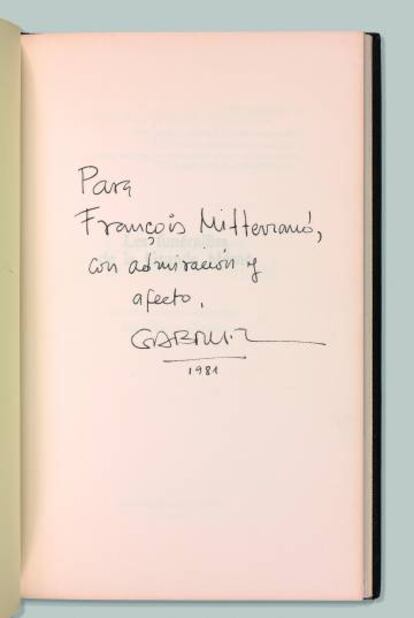 Para
François Mitterrand,
con admiración y
afecto.
GABRIEL
1981